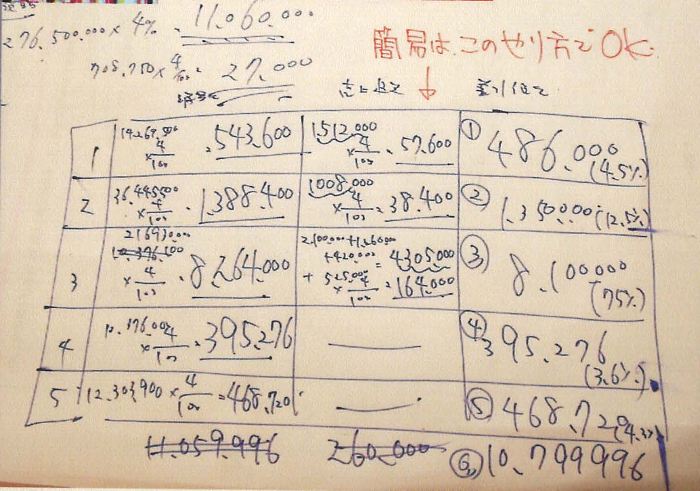 276.500.000 × 4% = 11.060.000
708.750 × 4/100 = 27.000
簡易は、このやり方でOK.
差引仕入
1
× 4/100 = 543.600
1512.000 × 4/100 = 57.600
① 486.000 (4.5%)
2
36.445500 × 4/100 = 1.388.400
1008.000 × 4/100 = 38.400
② 1.350.000 (12.5%)
3
21693.0000
× 4/100 = 8.264.000
2.100.000 + 1.260.000
+ 420.000
+ 525.000 = 4305.000
× 4/100 = 164.000
③ 8.100000 (75%)
4
× 4/100 = 395.276
④ 395.276 (3.6%)
5
12.303.900 × 4/100 = 468.720
⑤ 468.720 (4.3%)
11.059.996
260.000
⑥ 10.799996